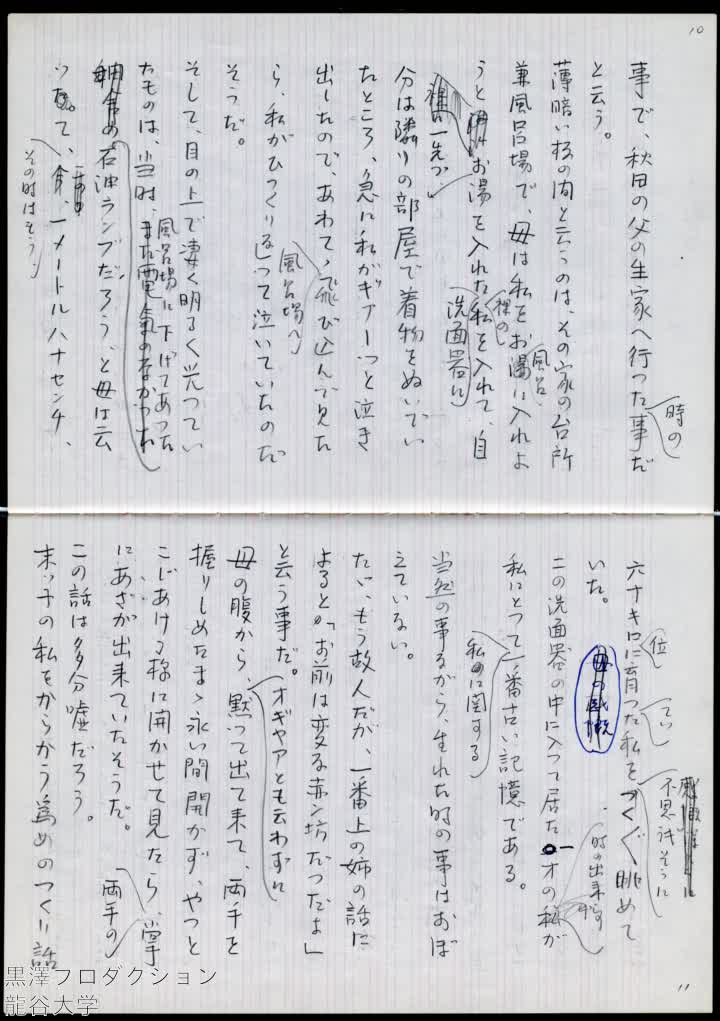 10
事で、秋田の父の生家へ行つた時の事だ
と云う。
薄暗い板の間と云うのは、その家の台所
兼風呂場で、母は私をお風呂に入れよ
うとお湯を入れた洗面器に裸の私を入れて、自
分は一先づ隣りの部屋で着物をぬいでい
たところ、急に私がギァーつと泣き
出したので、あわてゝ風呂場へ飛び込んで見た
ら、私がひつくり返つて泣いていたのだ
そうだ。
そして、目の上で凄く明るく光つてい
たものは、当時、まだ電気のなかつた
風呂場に下げてあつた
石油ランプだろう、と母は云
つて、その時はそう
一メートルハナセンチ、
六十キロ位に育つていた私を
不思議そうに
つくづく眺めて
いた。
この洗面器の中に入つて居た一才の
時の出来事が
私にとつて一番古い記憶である。
私に関する
当然の事ながら、生れた時の事はおぼ
えていない。
たゞ、もう故人だが、一番上の姉の話に
よると「お前は変な赤ン坊だつたよ」
と云う事だ。
オギヤアとも云わずに
母の腹から、黙つて出て来て、両手を
握りしめたまゝ永い間開かず、やつと
こじあける様に開かせて見たら、両手の掌
にあざが出来ていたそうだ。
この話は多分嘘だろう。
末ッ子の私をからかう為めのつくり話
11
黒澤プロダクション
龍谷大学